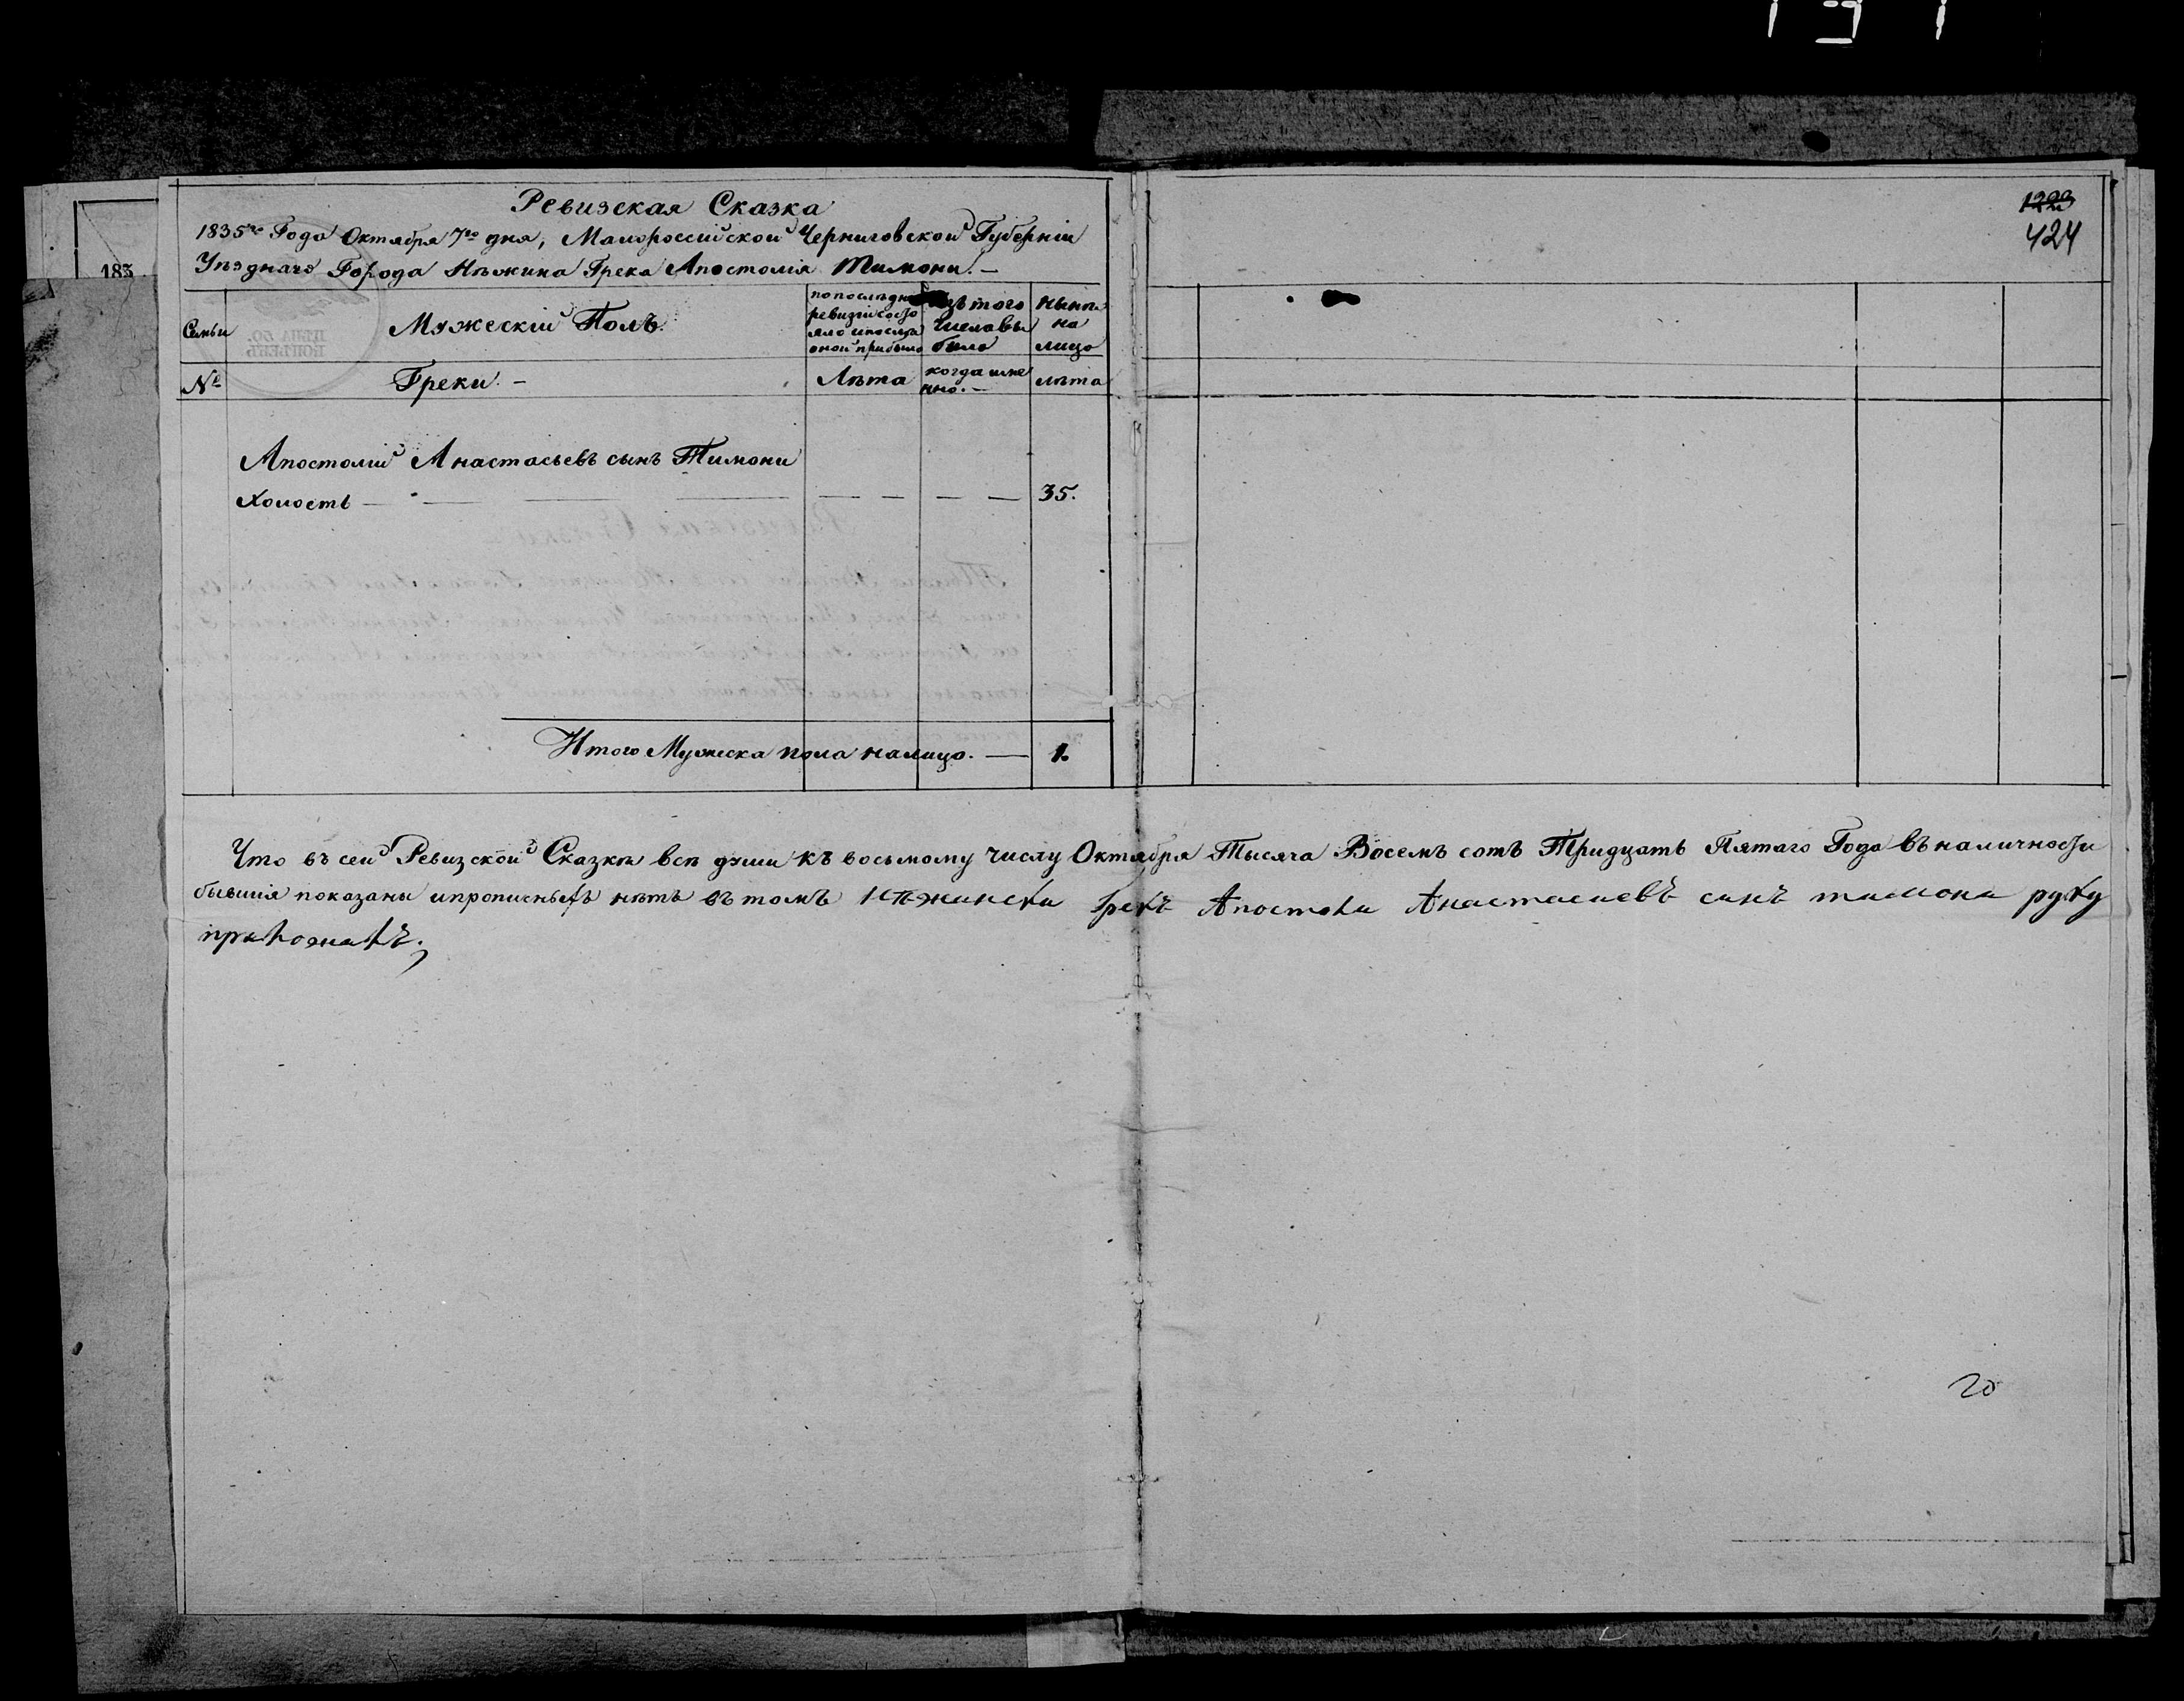 Ревизская Сказка
1835го Года Октября 7го дня, Малороссийской Черниговской Губернiи
Уѣзднаго Города Нѣжина Грека Апостолiя Тимони. —
1223
424
183
Семьи
Мужескiй Полъ.
попослѣдней ревизiи состояло ипослѣ оной прибыло
Изъ того числа выбыло
Нынѣ на лицо
№
Греки. —
Лѣта
когда именно. —
лѣта
Апостолiй Анастасьевъ сынъ Тимони
Холостъ — — — — — — — — 35.
Итого Мужеска пола налицо. — 1.
Что въ сей Ревизской Сказкѣ всѣ души къ восьмому числу Октября Тысяча Восемъ сотъ Тридцать Пятаго Года въ наличности
бывшiя показаны ипрописныхъ нѣтъ въ томъ нѣжински грекъ Апостоли Анастасиевъ синъ тимони руку
приложилъ;
20